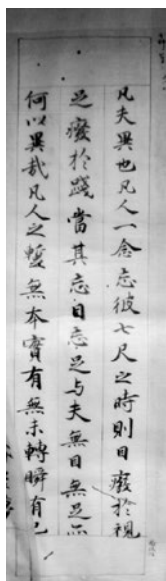 凡夫異也凡人一念忘彼七尺之時則目癈於視
足癈於踐當其忘目忘足与夫無目無足亦
何以異哉凡人之蹔無本實有無未轉瞬有已